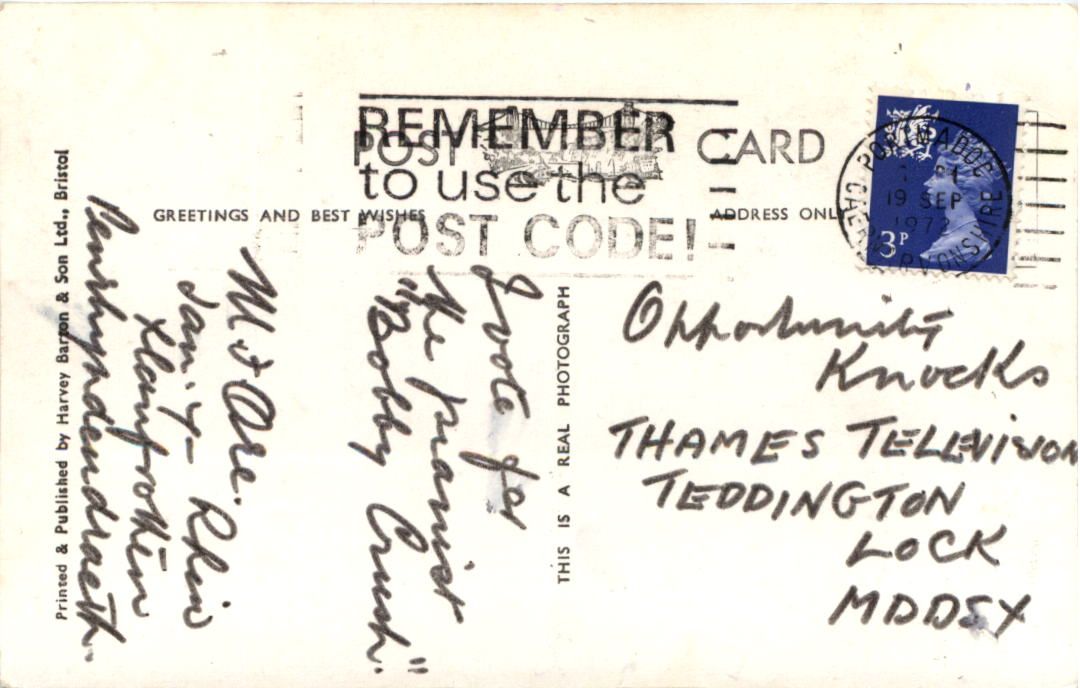 REMEMBER
to use the
POST CODE!
POST CARD
GREETINGS AND BEST WISHES
ADDRESS ONLY
PORTMADOC
19 SEP
1972
CAERNARVONSHIRE
3P
I vote for
the pianist
"Bobby Crush."
Tan-Y-Rhiw
Llanfrothen
Penrhyndeudraeth.
Opportunity
Knocks
THAMES TELEVISION
TEDDINGTON
LOCK
MDDSX
THIS IS A REAL PHOTOGRAPH
Printed & Published by Harvey Barton & Son Ltd., Bristol